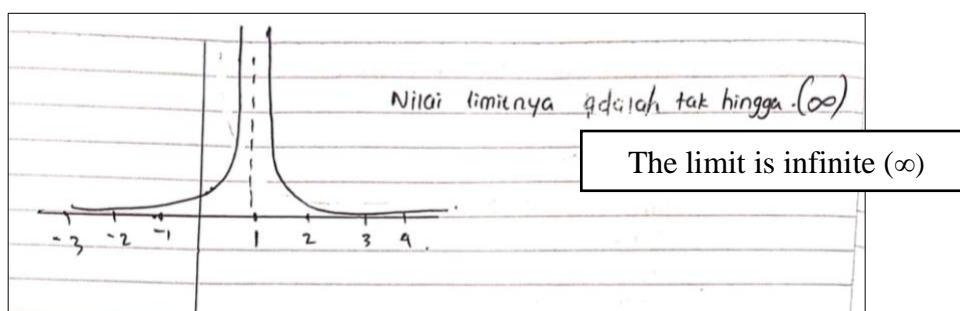 Nilai limitnya adalah tak hingga. (∞)
The limit is infinite (∞)
-3 -2 -1 1 2 3 4